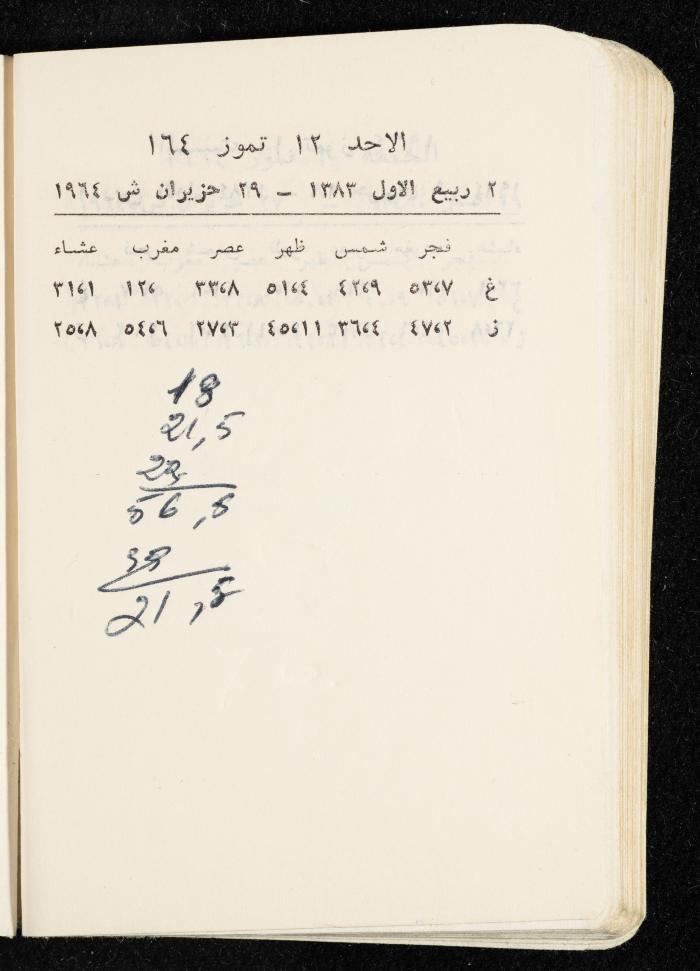 الاحد ١٢ تموز ١٦٤
٢ ربيع الاول ١٣٨٣ – ٢٩ حزيران ش ١٩٦٤
فجر شمس ظهر عصر مغرب عشاء
غ ٥٣،٧ ٤٢،٩ ٥١،٤ ٣٣،٨ ١٢، ٣١،١
ز ٤٧،٢ ٣٦،٤ ٤٥،١١ ٢٧،٣ ٥٤،٦ ٢٥،٨
18
21,5
56,5
21,5